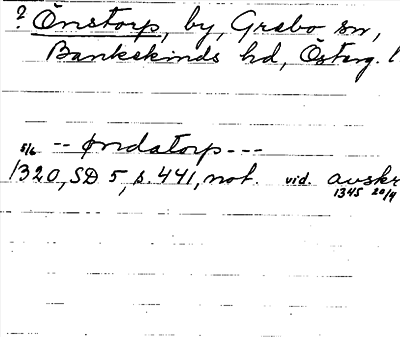 ? Önstorp, by, Grebo sn,
Bankekinds hd, Österg. l
5/6 -- ϕndatorp ---
1320, SD 5, s. 441, not. vid. avskr
1345 20/9